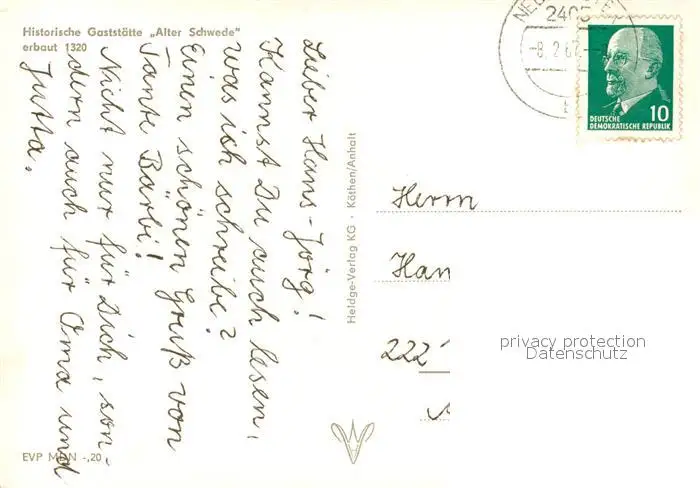 Historische Gaststätte „Alter Schwede"
erbaut 1320
Lieber Hans-Jörg!
Kannst Du auch lesen,
was ich schreibe?
Einen schönen Gruß von
Tante Bärbi!
Nicht nur für Dich, son-
dern auch für Oma und
Jutta.
EVP MDN -,20
Heldge-Verlag KG · Köthen/Anhalt
2405
-8.2.67
10
DEUTSCHE
DEMOKRATISCHE REPUBLIK
Herrn
Han
222
privacy protection
Datenschutz